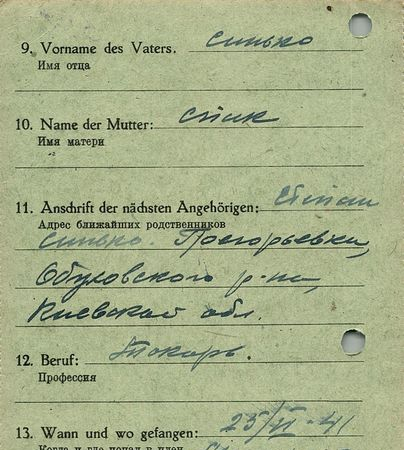 9. Vorname des Vaters. Синько
Имя отца
10. Name der Mutter:
Имя матери
11. Anschrift der nächsten Angehörigen: Степан
Адрес ближайших родственников
Синько.
Обуховского р-на,
Киевской обл.
12. Beruf: Токарь.
Профессия
13. Wann und wo gefangen: 25/VI-41
Когда и где попал в плен